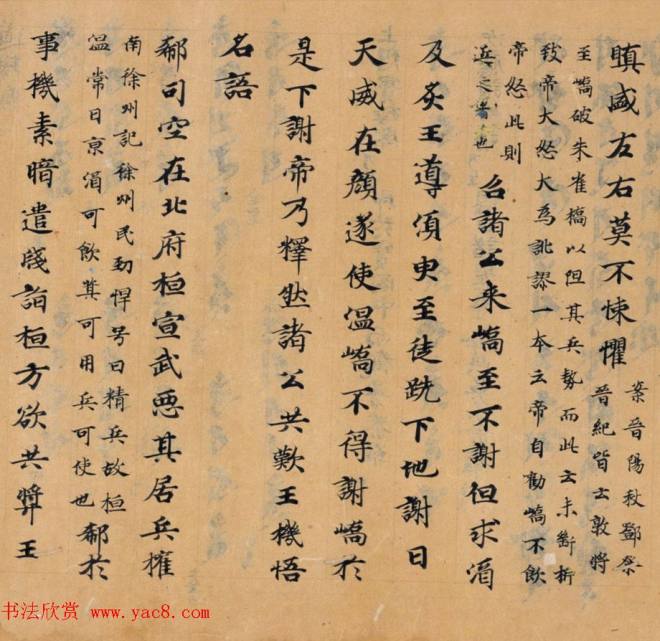 瞋盛左右莫不悚懼
案晉陽秋鄧粲
晉紀皆云敦將
至嶠破朱雀橋以阻其兵勢而此云未斷折
致帝大怒大為訛謬一本云帝自勸嶠不飲
帝怒此則
近之者也
召諸公来嶠至不謝但求酒
及炙王導須臾至徒跣下地謝曰
天威在顔遂使温嶠不得謝嶠於
是下謝帝乃釋然諸公共歎王機悟
名語
郗司空在北府桓宣武惡其居兵權
南徐州記徐州民勁悍号曰精兵故桓
温常曰京酒可飲箕可用兵可使也
郗於
事機素暗遣牋詣桓方欲共奬王
书法欣赏 www.yac8.com